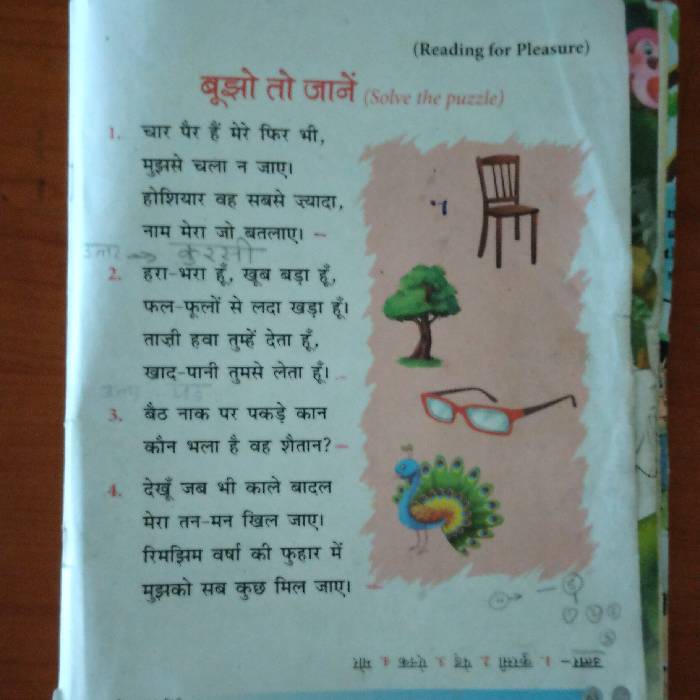 (Reading for Pleasure)
बूझो तो जानें (Solve the puzzle)
1. चार पैर हैं मेरे फिर भी,
मुझसे चला न जाए।
होशियार वह सबसे ज़्यादा,
नाम मेरा जो बतलाए। –
उत्तर → कुरसी
2. हरा-भरा हूँ, खूब बड़ा हूँ,
फल-फूलों से लदा खड़ा हूँ।
ताज़ी हवा तुम्हें देता हूँ,
खाद-पानी तुमसे लेता हूँ।
3. बैठ नाक पर पकड़े कान
कौन भला है वह शैतान? –
4. देखूँ जब भी काले बादल
मेरा तन-मन खिल जाए।
रिमझिम वर्षा की फुहार में
मुझको सब कुछ मिल जाए। –
उत्तर – 1. कुरसी 2. पेड़ 3. ऐनक 4. मोर